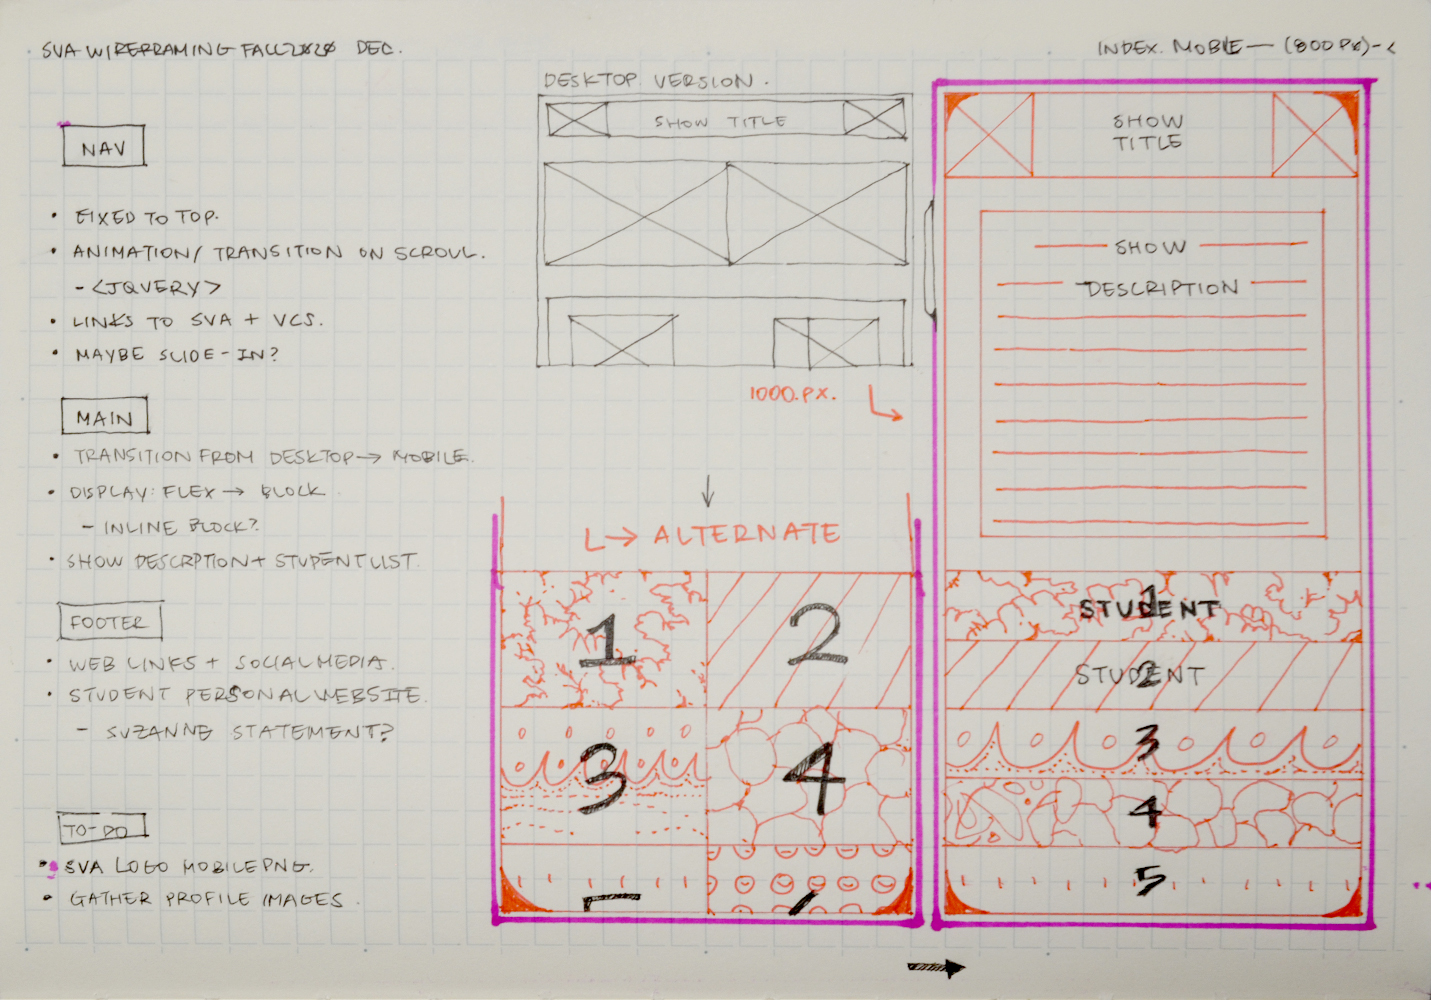 SVA WIREFRAMING FALL 2020 DEC.
NAV
• FIXED TO TOP.
• ANIMATION/ TRANSITION ON SCROLL.
- <JQUERY>
• LINKS TO SVA + VCS.
• MAYBE SLIDE-IN?
MAIN
• TRANSITION FROM DESKTOP → MOBILE.
• DISPLAY: FLEX → BLOCK
- INLINE BLOCK?
• SHOW DESCRPTION + STUDENT LIST.
FOOTER
• WEB LINKS + SOCIAL MEDIA.
• STUDENT PERSONAL WEBSITE.
- SUZANNE STATEMENT?
TO-DO
• SVA LOGO MOBILE PNG.
• GATHER PROFILE IMAGES.
DESKTOP VERSION.
SHOW TITLE
1000.PX.
ALTERNATE
1
2
3
4
INDEX. MOBIE — (800 PX) - <
SHOW
TITLE
SHOW
DESCRIPTION
STUDENT 1
STUDENT 2
3
4
5